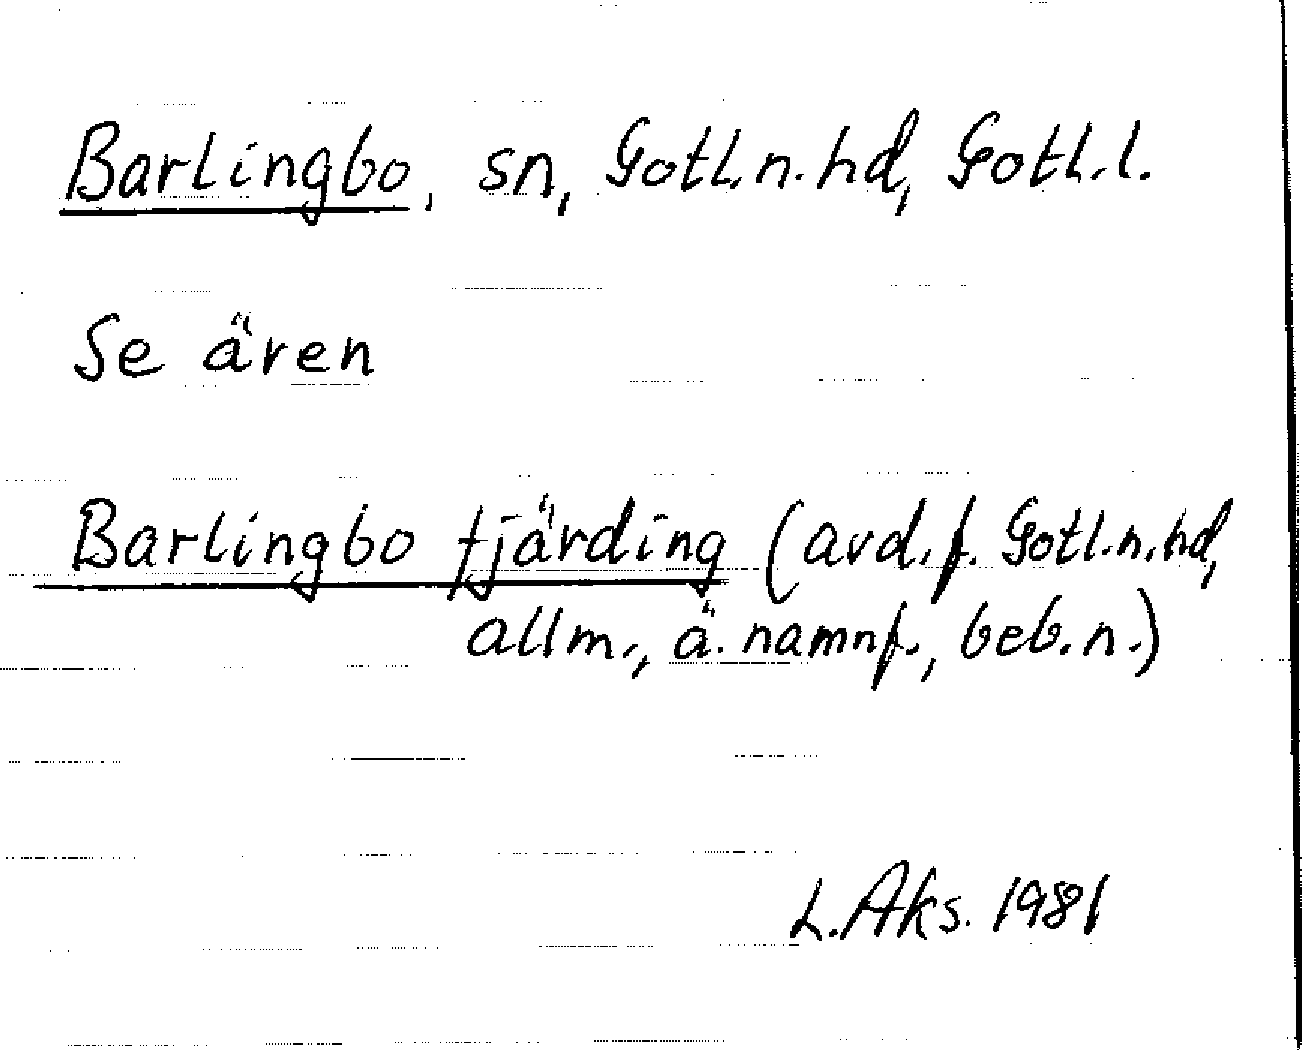 Barlingbo, sn, Gotl.n.hd, Gotl.l.
Se ären
Barlingbo fjärding (avd.f. Gotl.n.hd,
allm., ä. namnf., beb.n.)
L.Aks. 1981